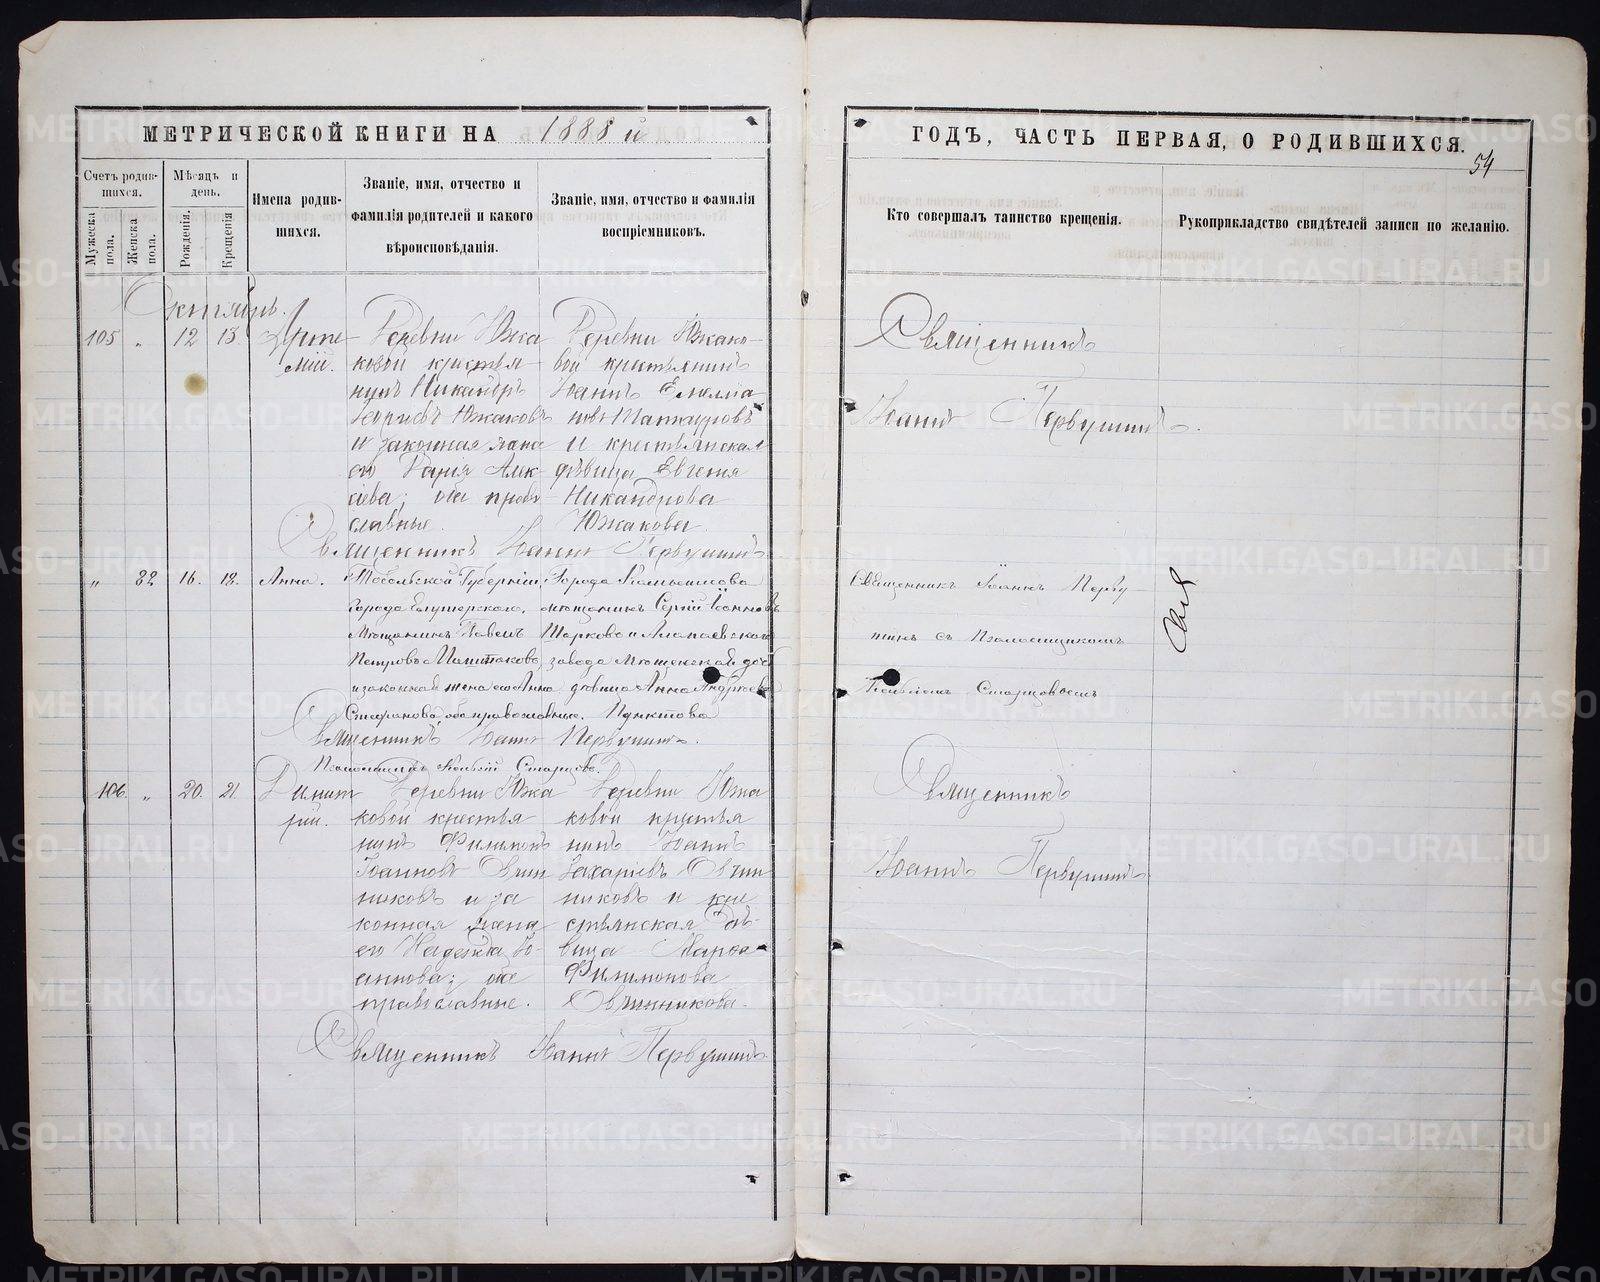 МЕТРИЧЕСКОЙ КНИГИ НА 1888 й
ГОДЪ, ЧАСТЬ ПЕРВАЯ, О РОДИВШИХСЯ.
54
Счетъ родив-
шихся.
Мужеска
пола.
Женска
пола.
Мѣсяцъ и
день.
Рожденія.
Крещенія
Имена родив-
шихся.
Званіе, имя, отчество и
фамилія родителей и какого
вѣроисповѣданія.
Званіе, имя, отчество и фамилія
воспріемниковъ.
Кто совершалъ таинство крещенія.
Рукоприкладство свидѣтелей записи по желанію.
Октябрь.
105 „ 12 13.
Арте-
мій.
Деревни Южа
ковой крестья
нинъ Никандръ
Южаковъ
и законная жена
его Дарія Алек-
сіева; оба право-
славные.
Деревни Южако-
вой крестьянинъ
Іоаннъ Емелiа
новъ
и крестьянская
дѣвица Евгенія
Никандрова
Южакова.
Священникъ Іоаннъ Первушинъ
Священникъ
Іоаннъ Первушинъ.
„ 82 16. 18. Анна.
Тобольской Губерніи,
города
Мѣщанинъ Павелъ
Петровъ
и законная жена его Анна
Стефанова, оба православные.
Города Камышлова
мѣщанинъ Сергій Іоанновъ
Шарковъ и Алапаевскаго
завода
дѣвица Анна Андреева
Священникъ Іоаннъ Первушинъ.
Псаломщикъ Старцовъ.
Священникъ Іоаннъ Перву-
шинъ съ Псаломщикомъ
Старцовымъ
106. „ 20. 21.
Димит
рій.
Деревни Южа
ковой крестья
нинъ Филимонъ
Іоанновъ Овчин
никовъ и за
конная жена
его Надежда Іо-
аннова; оба
православные.
Деревни Южа
ковой крестья
нинъ Іоаннъ
Захаріевъ Овчин
никовъ и кре
стьянская дѣ-
вица
Филимонова
Овчинникова.
Священникъ Іоаннъ Первушинъ
Священникъ
Іоаннъ Первушинъ
METRIKI.GASO-URAL.RU